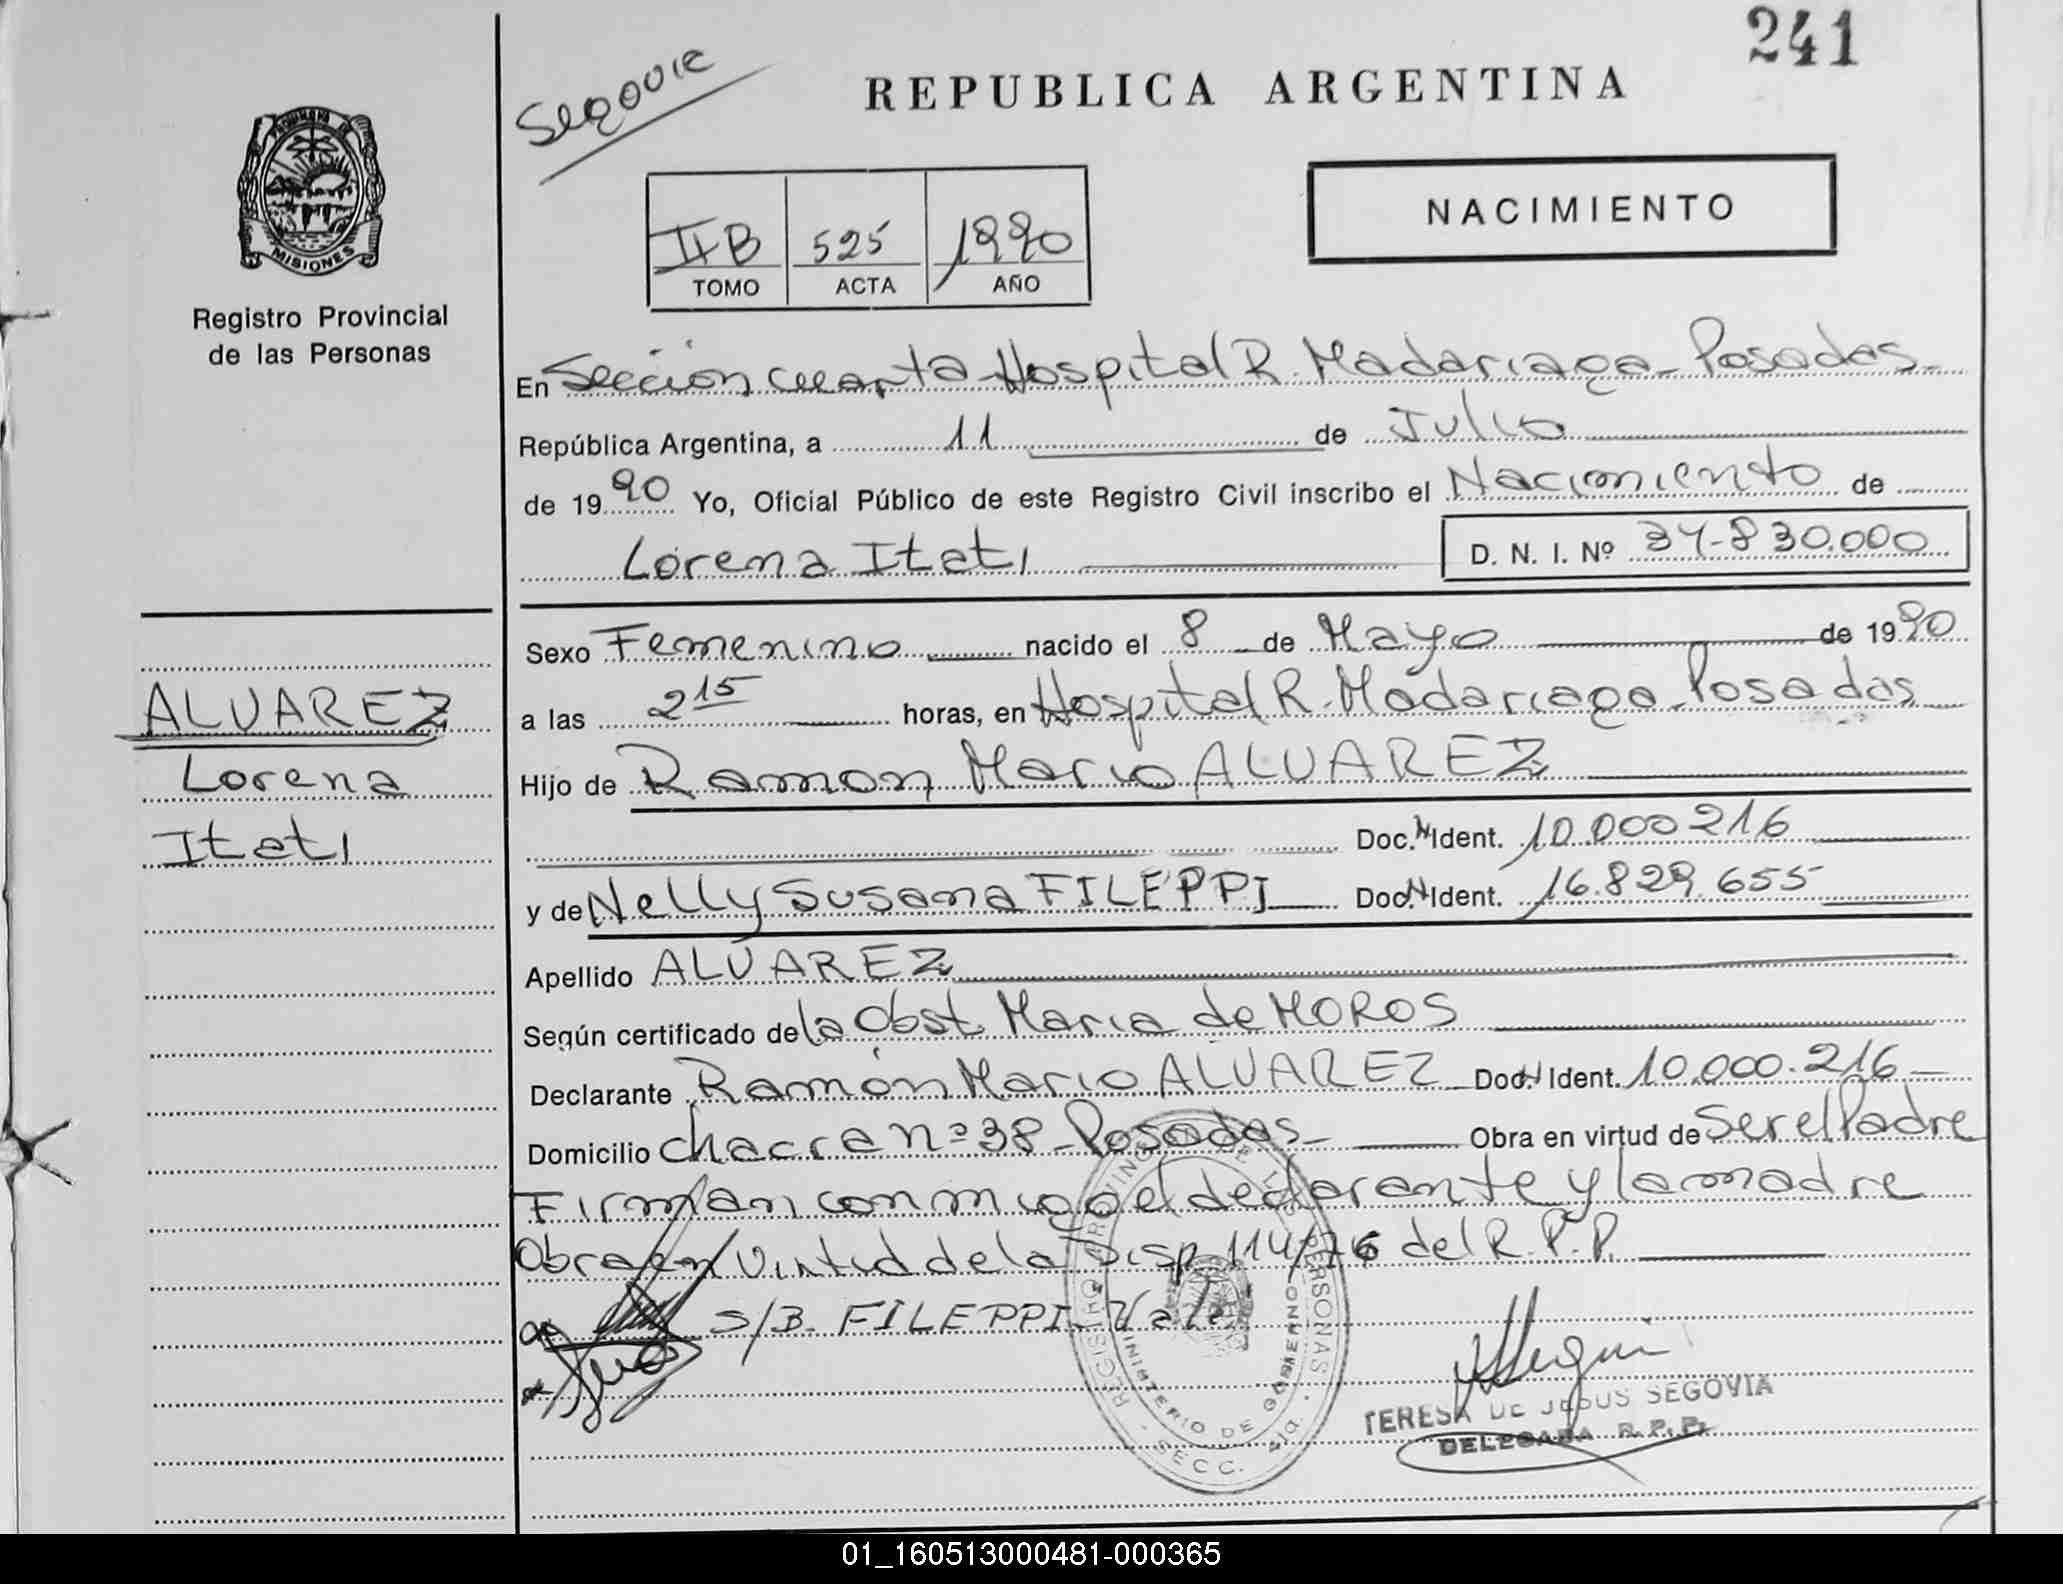 241
Segovia
REPUBLICA ARGENTINA
NACIMIENTO
II B 525 1990
TOMO ACTA AÑO
MISIONES
Registro Provincial
de las Personas
En Sección cuarta Hospital R. Madariaga - Posadas -
República Argentina, a 11 de Julio
de 1990 Yo, Oficial Público de este Registro Civil inscribo el Nacimiento de
Lorena Itati D. N. I. Nº 34-830.000
Sexo Femenino nacido el 8 de Mayo de 1990
ALVAREZ
Lorena
Itati
a las 2 15 horas, en Hospital R. Madariaga - Posadas
Hijo de Ramon Mario ALVAREZ
Doc. N Ident. 10.000 216
y de Nelly Susana FILEPPI Doc. N Ident. 16.829.655
Apellido ALVAREZ
Según certificado de la Obst. Maria de MOROS
Declarante Ramón Mario ALVAREZ Doc. N Ident. 10.000.216
Domicilio chacra nº 38 - Posadas - Obra en virtud de Ser el Padre
Firman conmigo el declarante y la madre
Obra en Virtud de la Disp. 114/76 del R.P.P.
S/B. FILEPPI. Vale
REGISTRO PROVINCIAL DE LAS PERSONAS
MINISTERIO DE GOBIERNO
SECC. 4ta.
TERESA DE JESUS SEGOVIA
DELEGADA R.P.P.
01_160513000481-000365